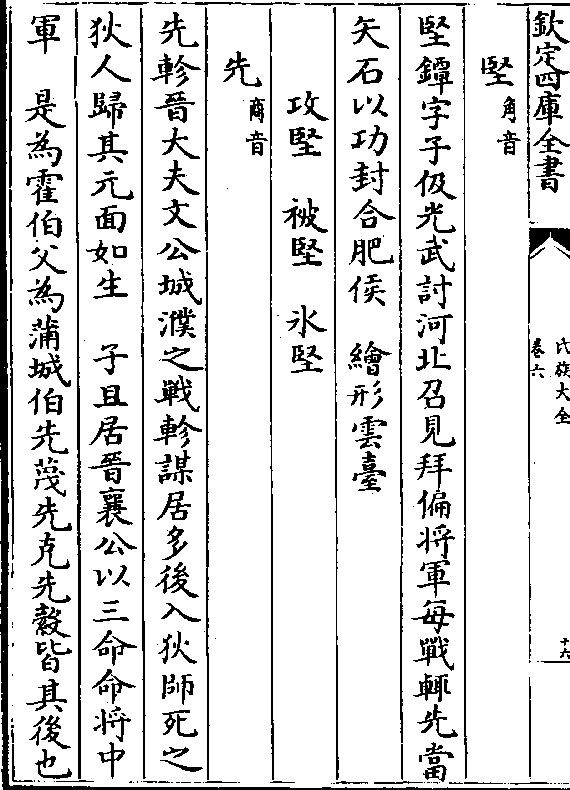 欽定四庫全書
氏族大全
卷六
十六
堅角音
堅鐔字子伋光武討河北召見拜偏將軍每戰輒先當
矢石以功封合肥侯　繪形雲臺
攻堅　被堅　氷堅
先商音
先軫晉大夫文公城濮之戰軫謀居多後入狄師死之
狄人歸其元面如生　子且居晉襄公以三命命將中
軍　是為霍伯父為蒲城伯先蔑先克先縠皆其後也